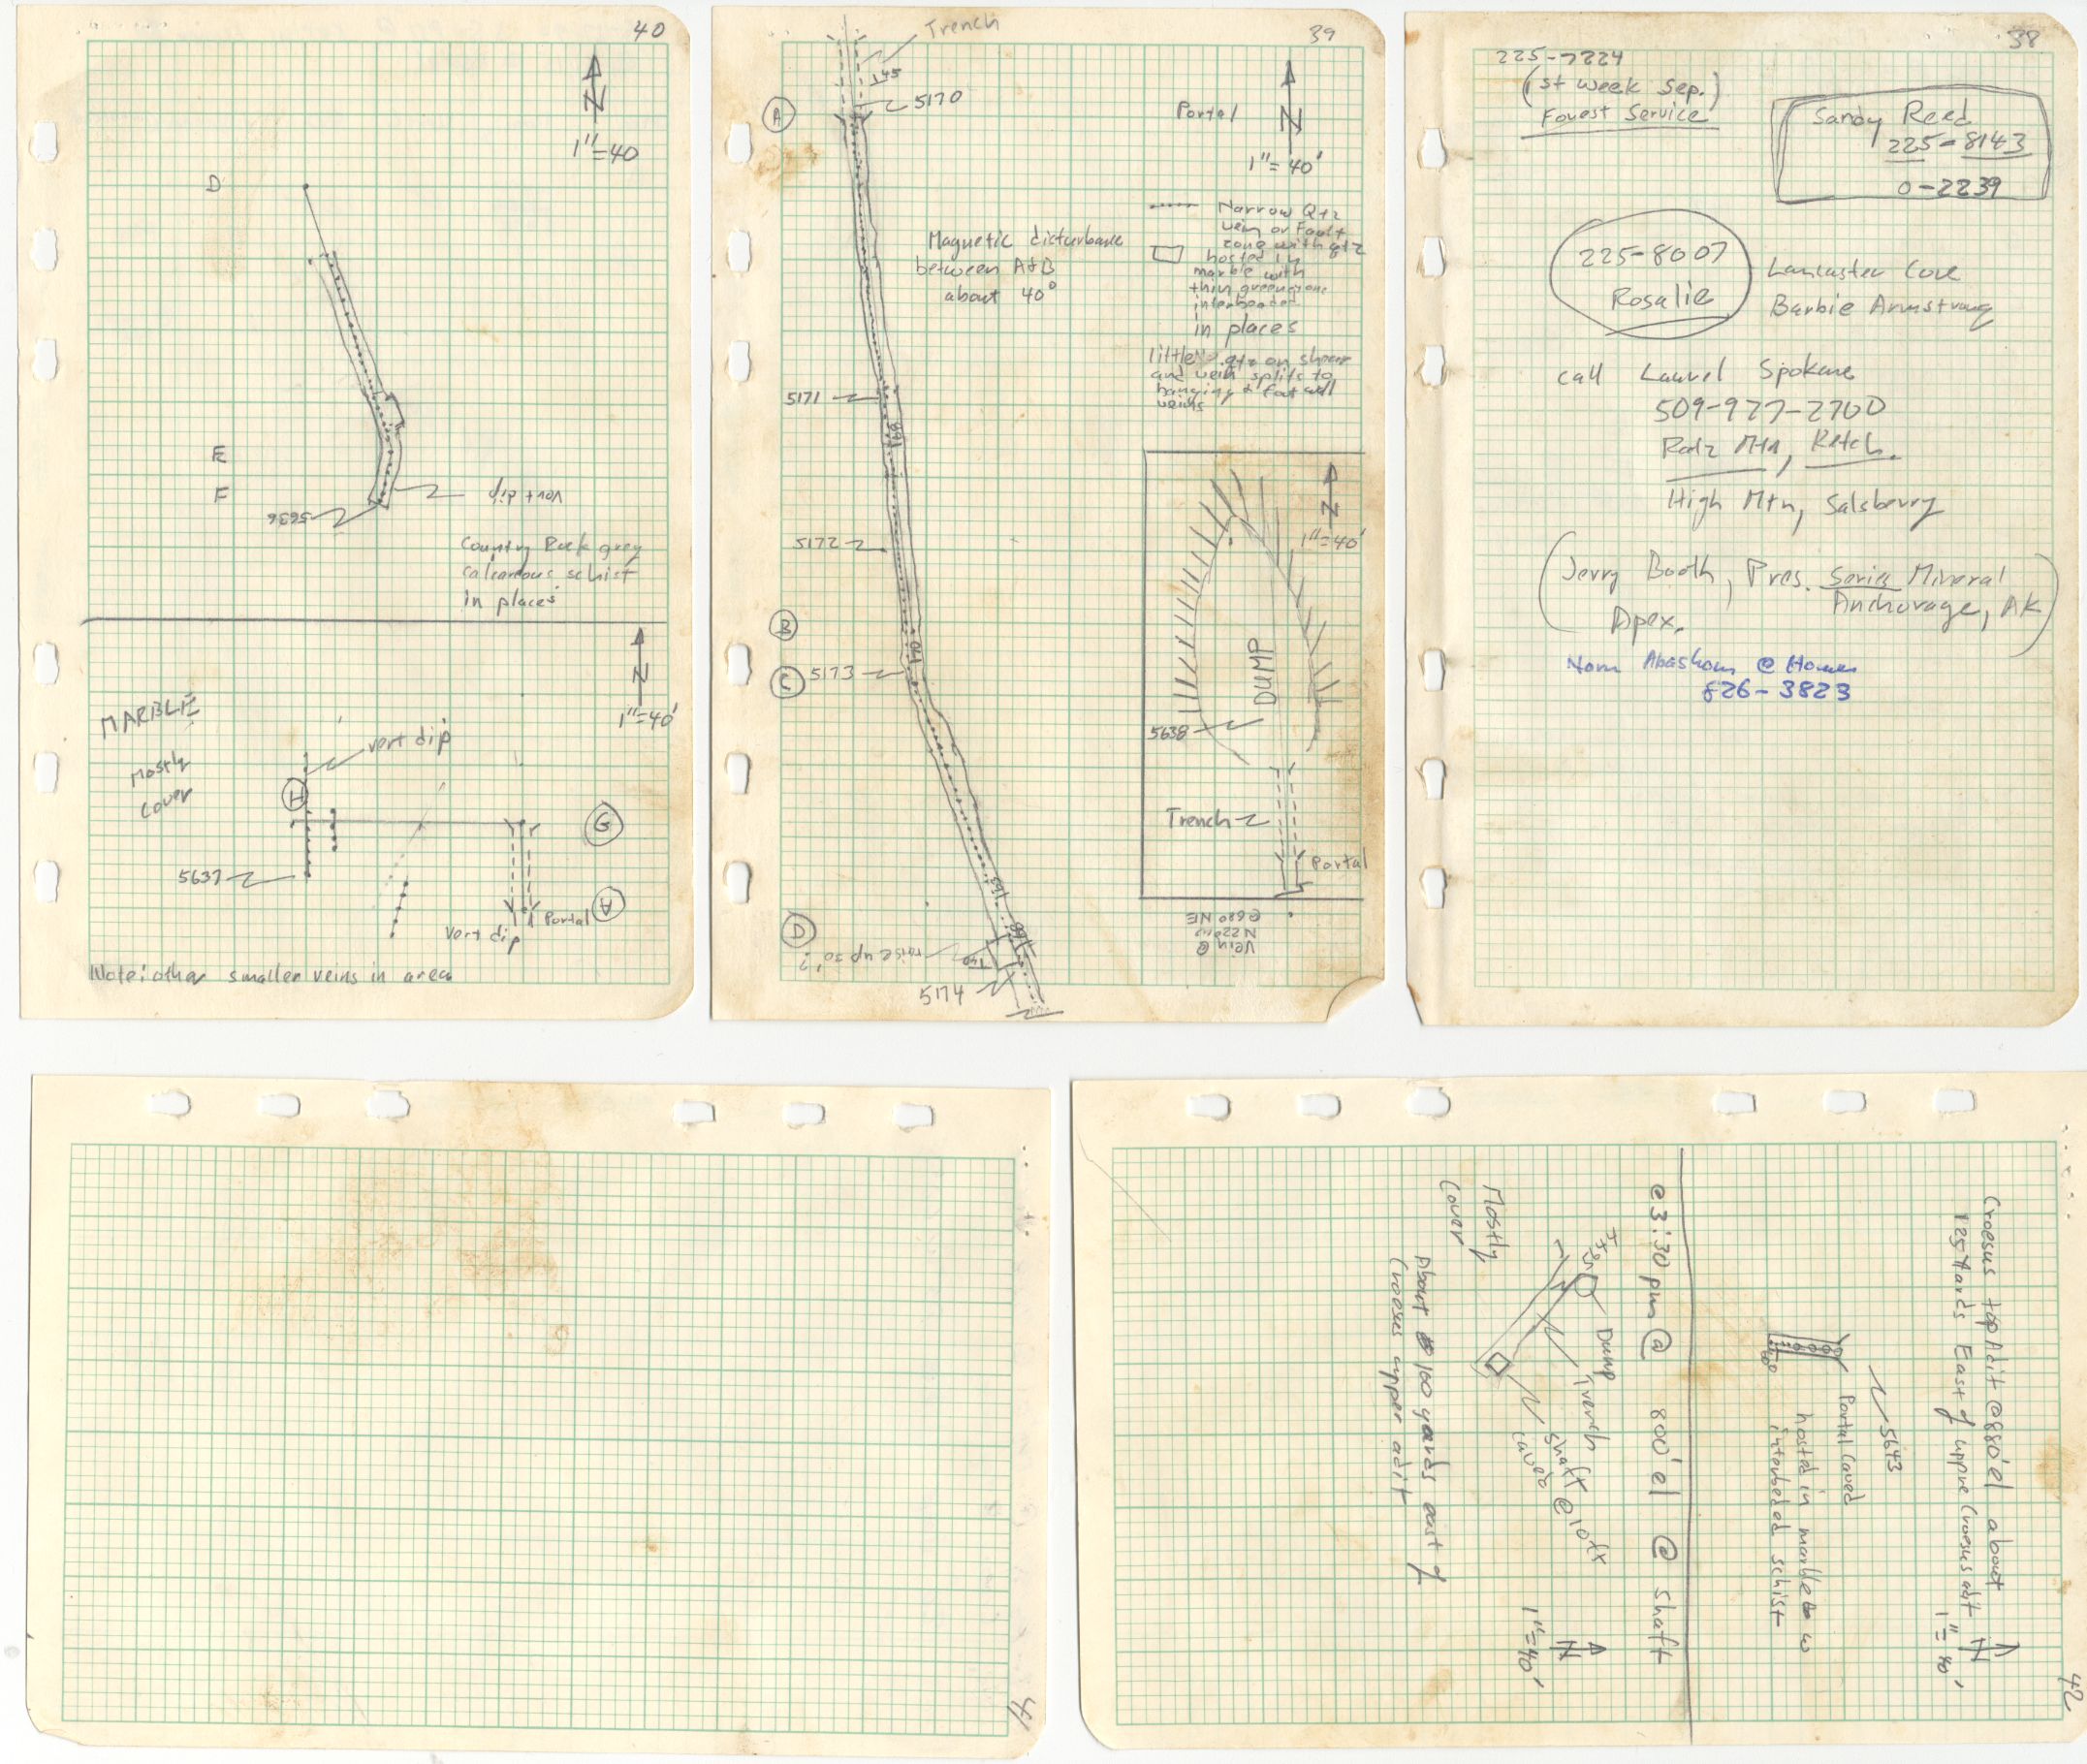 40
N
1"=40
D
E
F
dip +70°
5636
Country Rock grey
calcareous schist
in places
N
1"=40'
MARBLE
Mostly
Cover
vert dip
H
G
5637
Portal
A
Vert dip
Note: other smaller veins in area
39
Trench
145
5170
A
Portal
N
1"=40'
Narrow Qtz
vein or Fault
zone with qtz
hosted in
marble with
thin greenstone
interbedded
in places
Magnetic disturbance
between A&B
about 40°
little qtz on shear
and vein splits to
hanging & foot wall
veins
5171
168
5172
B
170
C
5173
N
1"=40'
DUMP
5638
Trench
Portal
Vein @
D
raise up 50'?
5174
38
225-7224
(1st week Sep.)
Forest Service
Sandy Reed
225-8143
0-2239
225-8007
Rosalie
Lancaster Cove
Barbie Armstrong
call Laurel Spokane
509-927-2700
Ratz Mtn, Ketch.
High Mtn, Salsberry
(Jerry Booth, Pres. Series Mineral
Anchorage, AK)
Apex.
626-3823
41
42
Croesus top Adit @ 880'el about
125 Yards East of uppre Croesus adit
N
1"=40'
5643
Portal Caved
hosted in marble w
interbeded schist
@ 3:30 pm @ 800'el @ shaft
Dump
Trench
Shaft @ 10ft
caved
Mostly
Cover
N
1"=40'
About 100 yards east of
Croesus upper adit